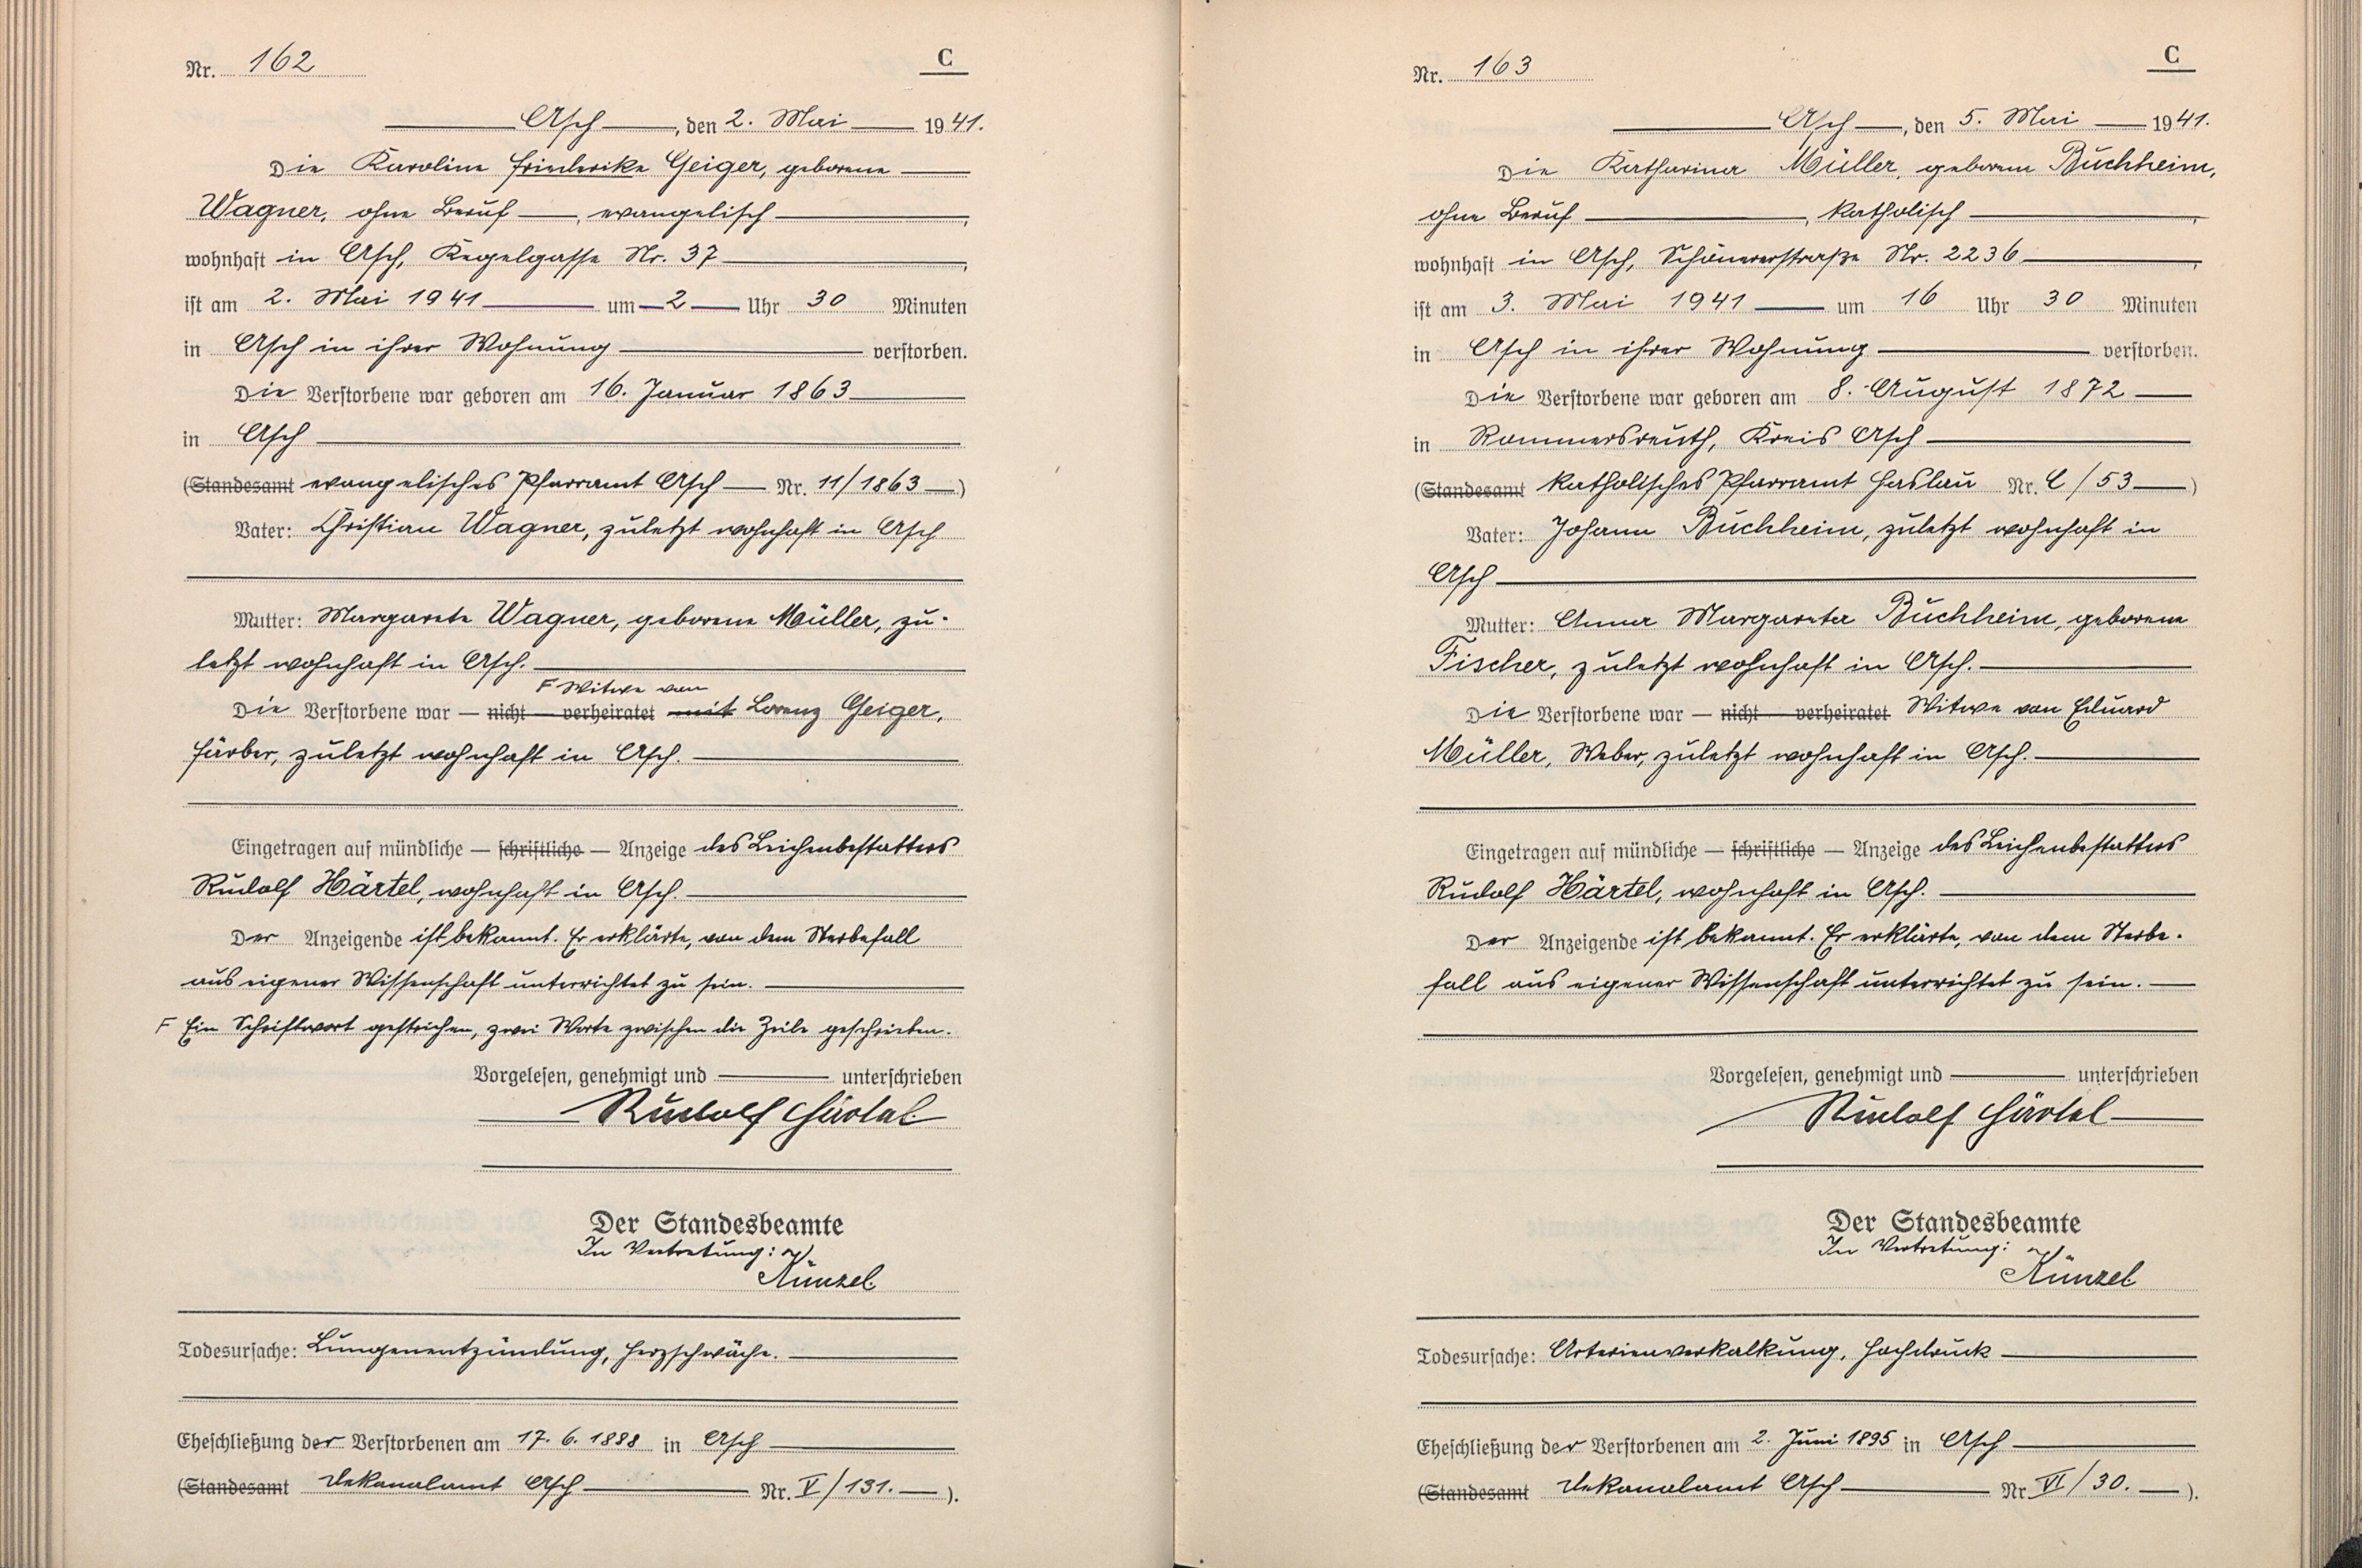 Nr. 162
C
Asch, den 2. Mai 1941.
Die Karoline Friederike Geiger, geborene
Wagner, ohne Beruf, evangelisch,
wohnhaft in Asch, Kegelgasse Nr. 37,
ist am 2. Mai 1941 um 2 Uhr 30 Minuten
in Asch in ihrer Wohnung verstorben.
Die Verstorbene war geboren am 16. Januar 1863
in Asch
(Standesamt evangelisches Pfarramt Asch Nr. 11/1863)
Vater: Christian Wagner, zuletzt wohnhaft in Asch
Mutter: Margarete Wagner, geborene Müller, zu-
letzt wohnhaft in Asch.
F Witwe von
Die Verstorbene war — nicht — verheiratet mit Lorenz Geiger,
Färber, zuletzt wohnhaft in Asch.
Eingetragen auf mündliche — schriftliche — Anzeige des Leichenbestatters
Rudolf Härtel, wohnhaft in Asch.
Der Anzeigende ist bekannt. Er erklärte, von dem Sterbefall
aus eigener Wissenschaft unterrichtet zu sein.
F Ein Schriftwort gestrichen, zwei Worte zwischen die Zeile geschrieben.
Vorgelesen, genehmigt und unterschrieben
Rudolf Härtel
Der Standesbeamte
In Vertretung:
Künzel
Todesursache: Lungenentzündung, Herzschwäche.
Eheschließung der Verstorbenen am 17. 6. 1888 in Asch
(Standesamt Dekanalamt Asch Nr. V/131.).
Nr. 163
C
Asch, den 5. Mai 1941.
Die Katharina Müller, geborene Buchheim,
ohne Beruf, katholisch,
wohnhaft in Asch, Schönererstraße Nr. 2236,
ist am 3. Mai 1941 um 16 Uhr 30 Minuten
in Asch in ihrer Wohnung verstorben.
Die Verstorbene war geboren am 8. August 1872
in Rommersreuth, Kreis Asch
(Standesamt katholisches Pfarramt Haslau Nr. C/53)
Vater: Johann Buchheim, zuletzt wohnhaft in
Asch
Mutter: Anna Margareta Buchheim, geborene
Fischer, zuletzt wohnhaft in Asch.
Die Verstorbene war — nicht — verheiratet Witwe von Eduard
Müller, Weber, zuletzt wohnhaft in Asch.
Eingetragen auf mündliche — schriftliche — Anzeige des Leichenbestatters
Rudolf Härtel, wohnhaft in Asch.
Der Anzeigende ist bekannt. Er erklärte, von dem Sterbe-
fall aus eigener Wissenschaft unterrichtet zu sein.
Vorgelesen, genehmigt und unterschrieben
Rudolf Härtel
Der Standesbeamte
In Vertretung:
Künzel
Todesursache: Arterienverkalkung, Hochdruck
Eheschließung der Verstorbenen am 2. Juni 1895 in Asch
(Standesamt Dekanalamt Asch Nr. VI/30.).